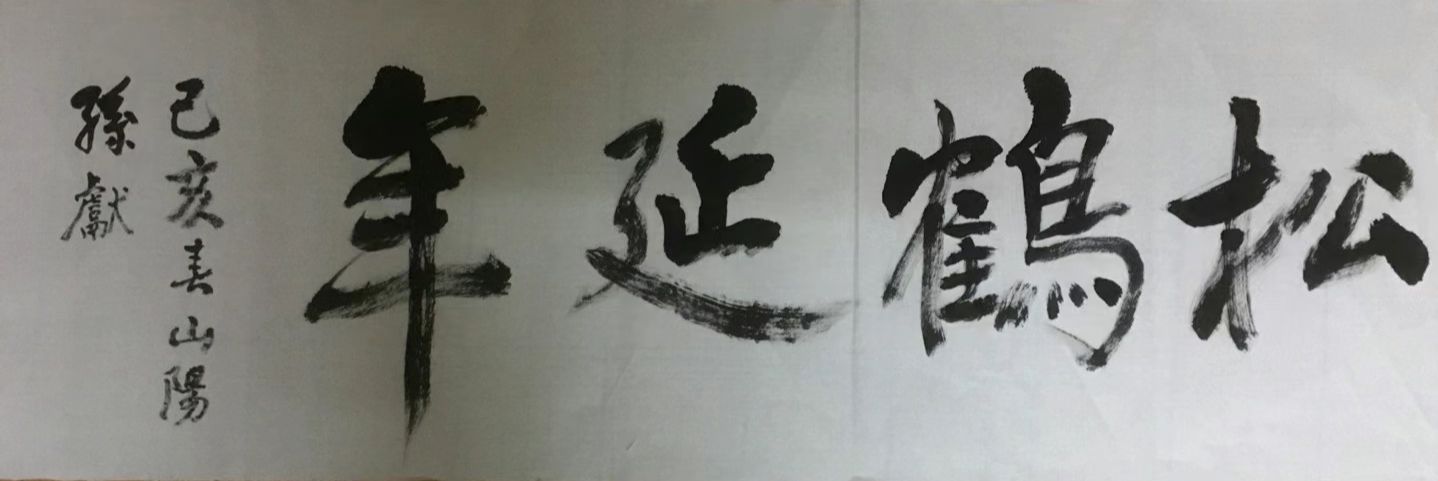 松鶴延年
己亥春山陽
孫獻